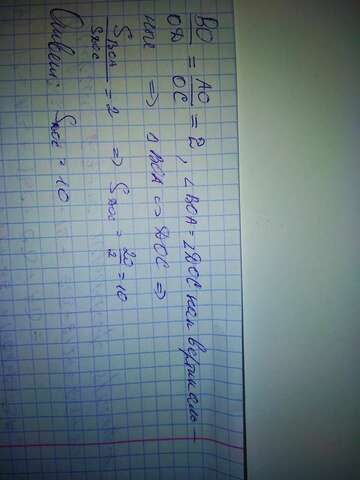 BO/OD = AO/OC = 2, ∠BOA = ∠DOC как вертикаль-
ные ⇒ △ BOA ∽ DOC ⇒
S BOA / S DOC = 2 ⇒ S DOC = 20/2 = 10
Ответ: S DOC = 10